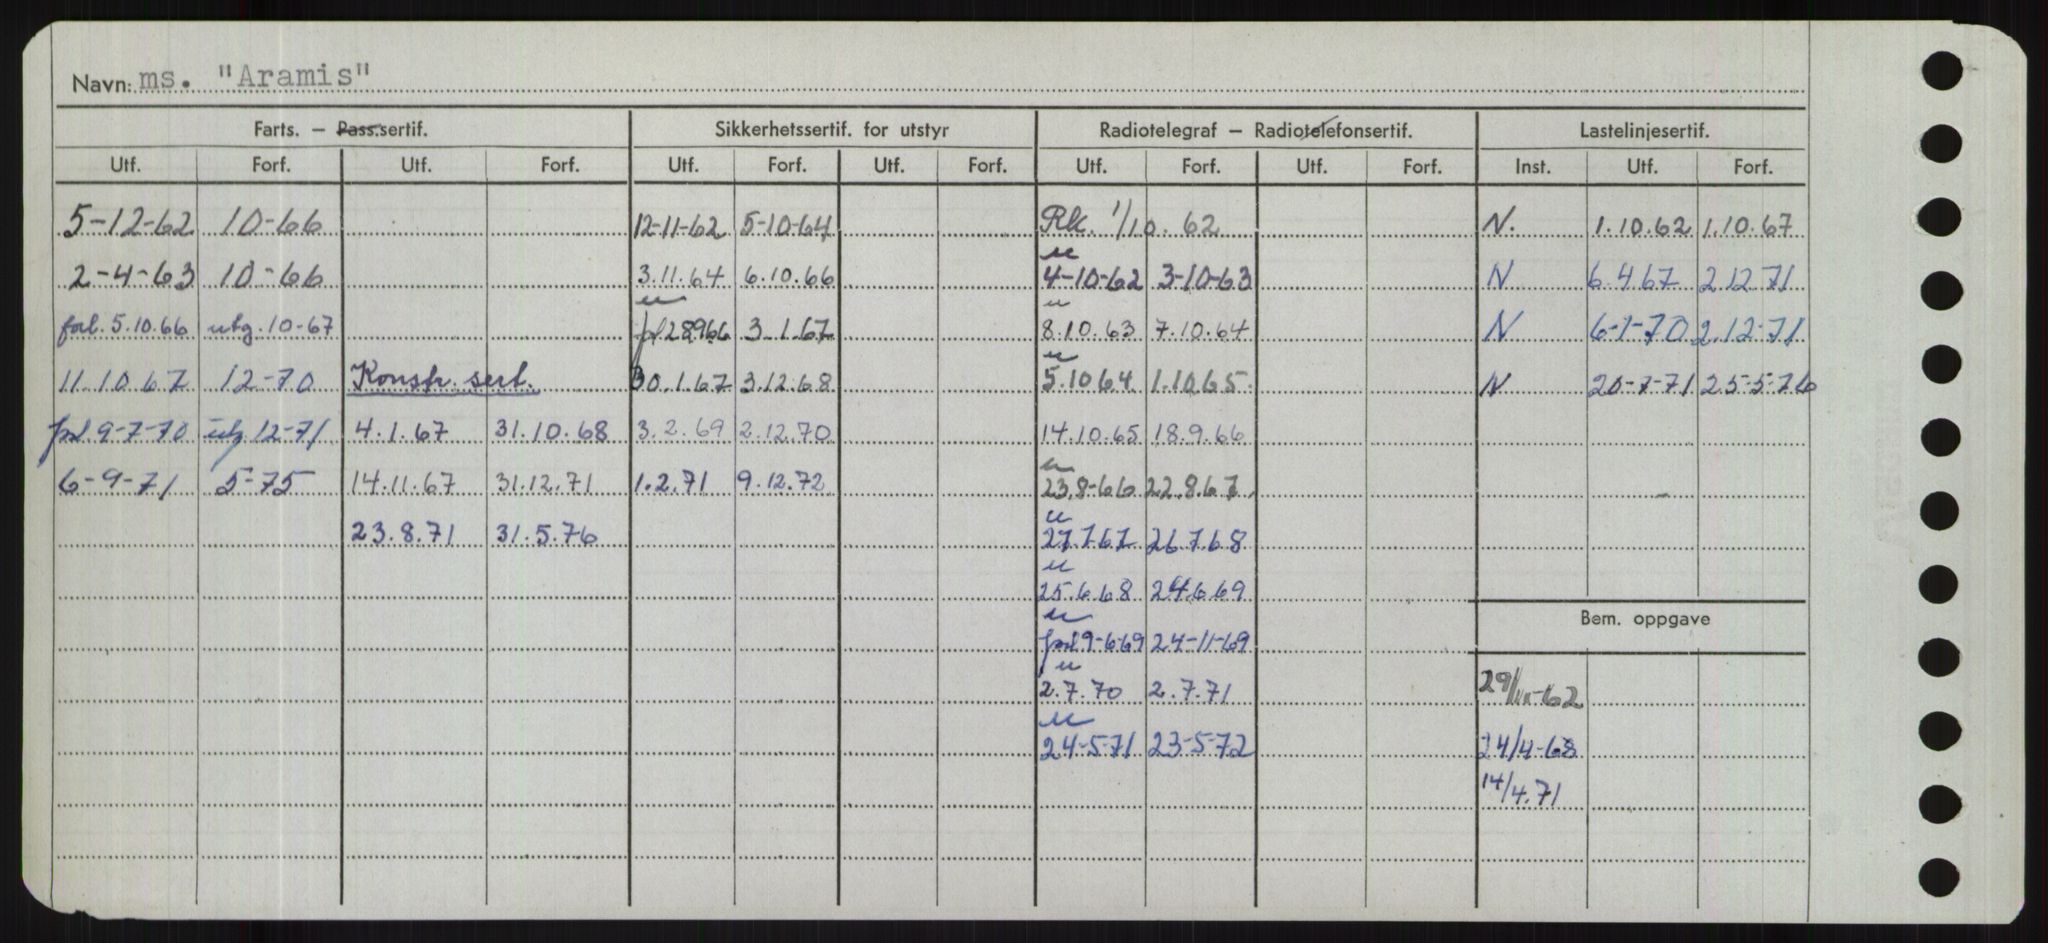 Navn: ms. "Aramis"
Farts. – Pass.sertif. Sikkerhetssertif. for utstyr Radiotelegraf – Radiotelefonsertif. Lastelinjesertif.
Utf. Forf. Utf. Forf. Utf. Forf. Utf. Forf. Utf. Forf. Utf. Forf. Inst. Utf. Forf.
5-12-62 10-66 12-11-62 5-10-64 Rk. 1/10. 62 N. 1.10.62 1.10.67
2-4-63 10-66 3.11.64 6.10.66 4-10-62 3-10-63 N 6.4.67 2.12.71
forl. 5.10.66 utg. 10-67 28966 3.1.67 8.10.63 7.10.64 N 6-1-70 2.12-71
11.10.67 12-70 Konstr. sert. 30.1.67 3.12.68 5.10.64 1.10.65. N 20-7-71 25-5-76
9-7-70 utg 12-71 4.1.67 31.10.68 3.2.69 2.12.70 14.10.65 18.9.66
6-9-71 5-75 14.11.67 31.12.71 1.2.71 9.12.72 23.8-66 22.8.67
23.8.71 31.5.76 27.7.67 26.7.68
25.6.68 24.6.69
Bem. oppgave
9-6-69 24-11-69
2.7.70 2.7.71 29/ -62
24-5-71 23-5-72 24/4-68
14/4.71